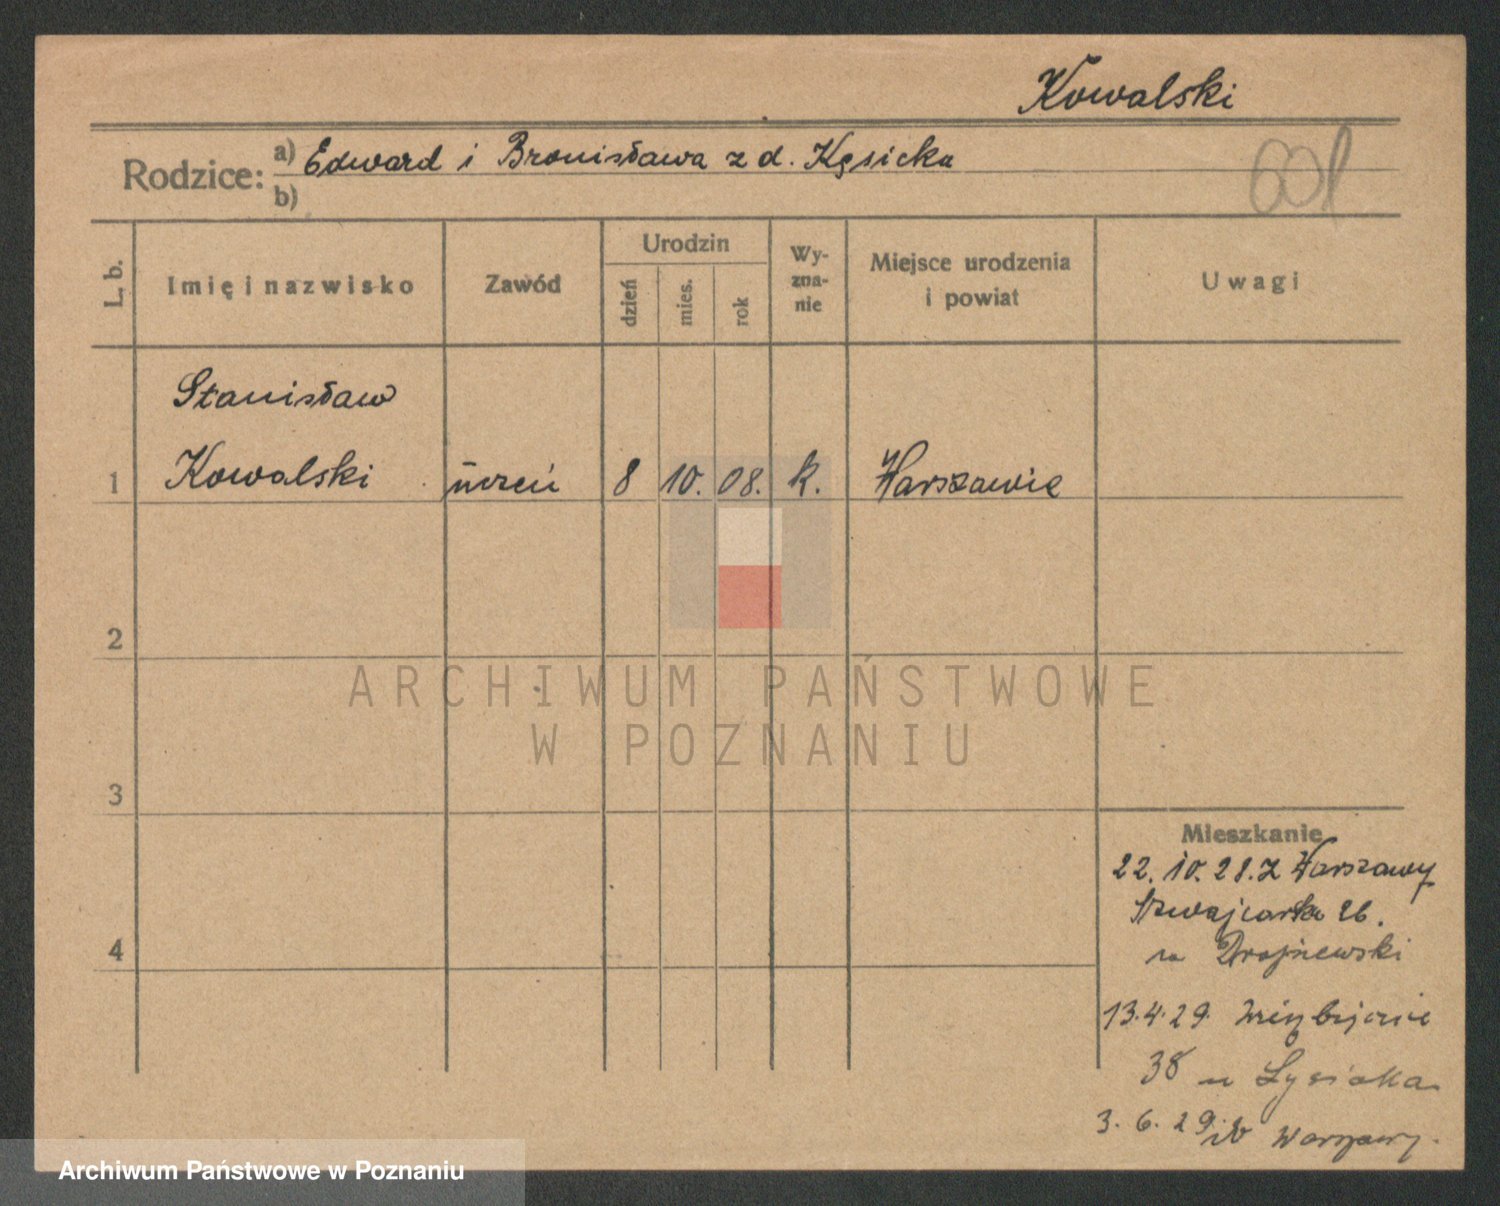 Kowalski
Rodzice: a) Edward i Bronisława z d. Kęsicka
b)
601
L. b.
Imię i nazwisko
Zawód
Urodzin
dzień
mies.
rok
Wy-
zna-
nie
Miejsce urodzenia
i powiat
Uwagi
Stanisław
1 Kowalski uczeń 8 10. 08. k. Warszawie
2
3
4
Mieszkanie
22. 10. 28. z Warszawy
26.
Drojewski
13.4.29.
38 u Łysiaka
3. 6. 29 Warszawy.
ARCHIWUM PAŃSTWOWE
W POZNANIU
Archiwum Państwowe w Poznaniu